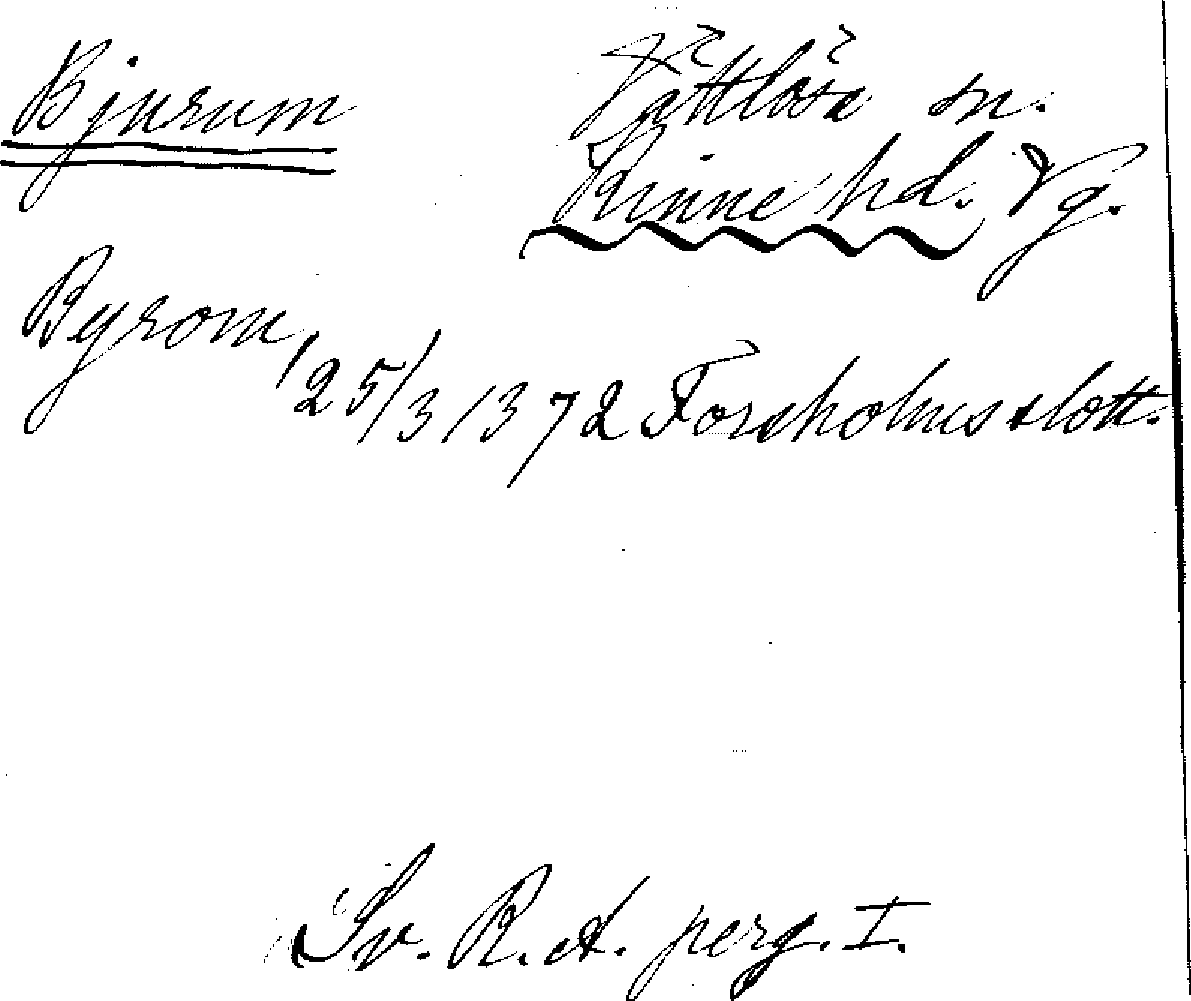 Bjurum
Vättlösa sn.
Kinne hd. Vg.
Byrom, 25/3 1372 Forsholms slott.
Sv. R. A. perg. I.